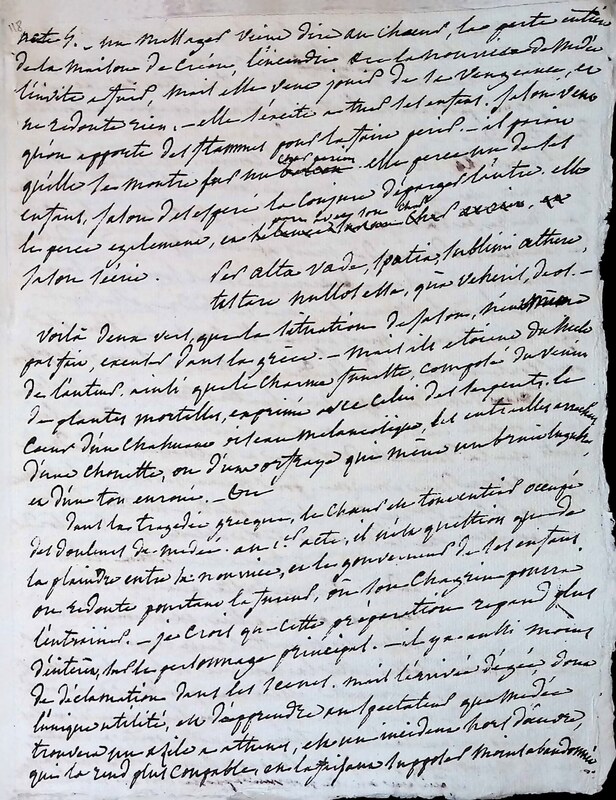 acte 5. – un messager vient dire au choeur, la perte entiere
de la maison de Créon, l'incendie &c la nourrice de Médée
l'invite a fuir, mais elle veut jouir de sa vengeance, et
ne redoute rien. – elle s'excite a tuer ses enfans. Jason veut
qu'on apporte des flammes pour la faire perir. –
qu'elle se montre sur un char aerien. elle perce un de ses
enfans, Jason desesperé la conjure d'épargner l'autre. elle
le perce egalement, en
Jason s'écrie. per alta vade, spatia, sublimi athere,
testere nullos esse, qua veheris, deos. –
Voilà deux vers, que la situation de Jason,
pas fait, excuser dans la grèce. – mais ils etoient du siecle
de l'auteur. ainsi que le charme funeste, composé du venin
de plantes mortelles, exprimé avec celui des serpents, le
coeur d'un chahuant oiseau mélancolique, les entrailles arrachées
d'une chouette, ou d'une orfraye qui mène un bruit lugubre
et d'un ton enroué. –
dans la tragédie grecque, le choeur est tout entier occupé
des douleurs de médée. au 1er acte, il n'est question que de
la plaindre entre sa nourrice, et le gouverneur de ses enfans.
on redoute pourtant la fureur, où son chagrin pourra
l'entrainer. – je crois que cette préparation repand plus
d'interêt, sur le personnage principal. – il y a aussi moins
de déclamation dans les scenes. mais l'arrivée d'egée dont
l'unique utilité, est d'apprendre au spectateur que médée
trouvera un asile a athenes, est un incident hors d'oeuvre,
qui la rend plus coupable, en la faisant supposer moins abandonnée.